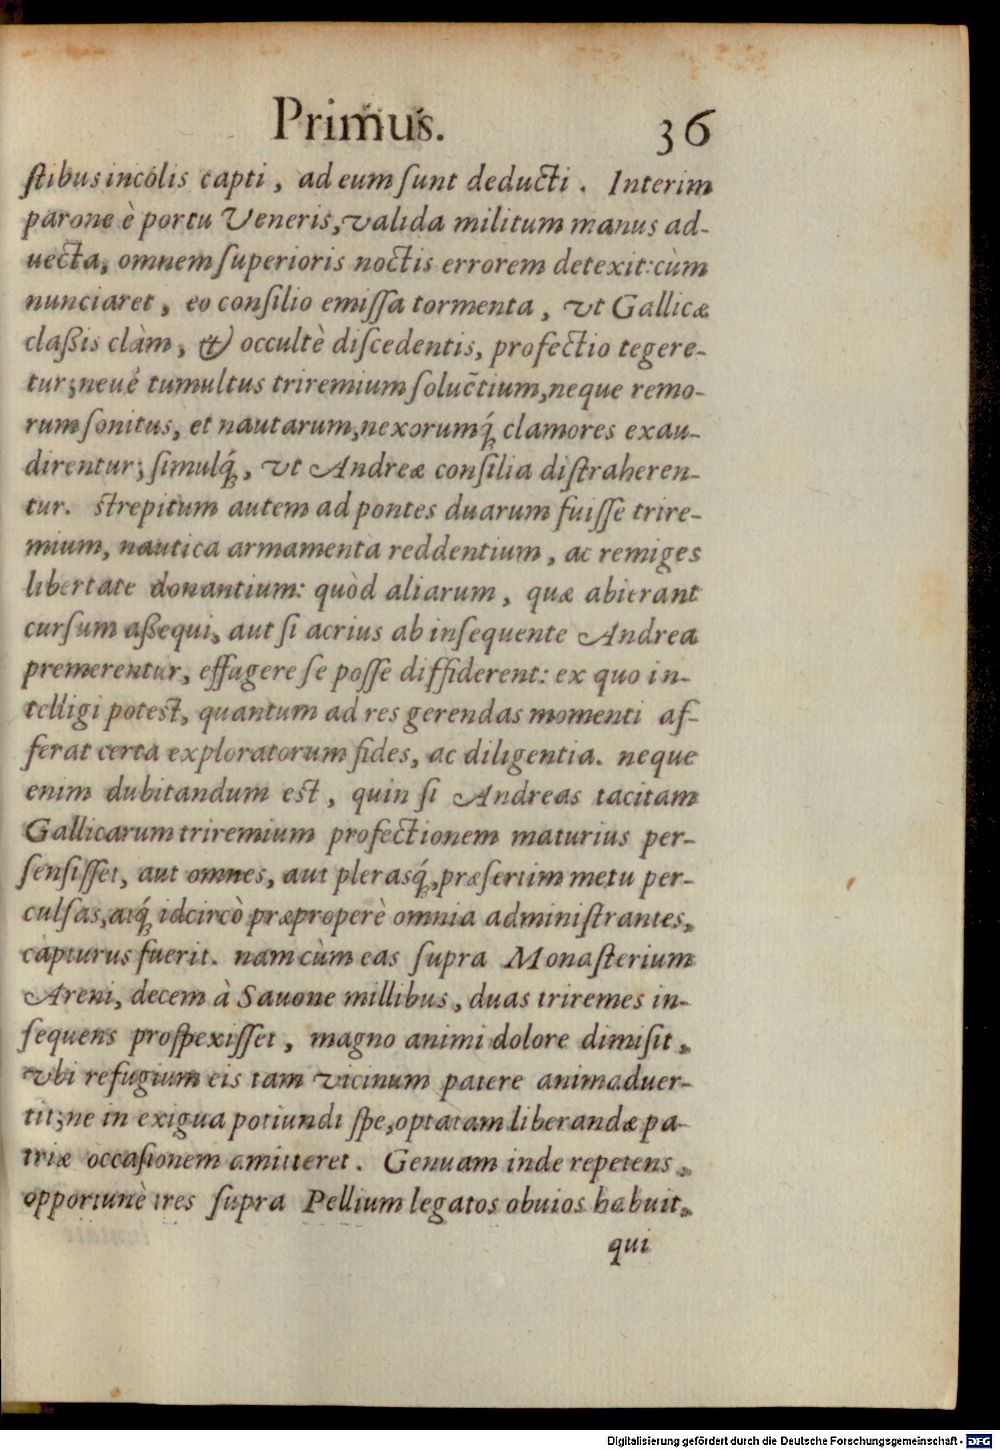 Primus. 36
ſtibus incolis capti, ad eum ſunt deducti. Interim
parone è portu Veneris, valida militum manus ad-
uecta, omnem ſuperioris noctis errorem detexit: cùm
nunciaret, eo conſilio emiſſa tormenta, vt Gallicæ
claßis clàm, & occultè diſcedentis, profectio tegere-
tur; neuè tumultus triremium ſoluc̃tium, neque remo-
rum ſonitus, et nautarum, nexorumq́; clamores exau-
direntur; ſimulq́;, vt Andreæ conſilia diſtraheren-
tur. ſtrepitum autem ad pontes duarum fuiſſe trire-
mium, nautica armamenta reddentium, ac remiges
libertate donantium: quòd aliarum, quæ abierant
curſum aßequi, aut ſi acrius ab inſequente Andrea
premerentur, effugere ſe poſſe diffiderent: ex quo in-
telligi poteſt, quantum ad res gerendas momenti af-
ferat certa exploratorum fides, ac diligentia. neque
enim dubitandum eſt, quin ſi Andreas tacitam
Gallicarum triremium profectionem maturius per-
ſenſiſſet, aut omnes, aut plerasq́;, præſertim metu per-
culſas, atq́; idcircò præproperè omnia adminiſtrantes,
capturus fuerit. nam cùm eas ſupra Monaſterium
Areni, decem à Sauone millibus, duas triremes in-
ſequens proſpexiſſet, magno animi dolore dimiſit,
vbi refugium eis tam vicinum patere animaduer-
tit; ne in exigua potiundi ſpe, optatam liberandæ pa-
triæ occaſionem amitteret. Genuam inde repetens,
opportunè tres ſupra Pellium legatos obuios habuit,
qui
Digitalisierung gefördert durch die Deutsche Forschungsgemeinschaft - DFG